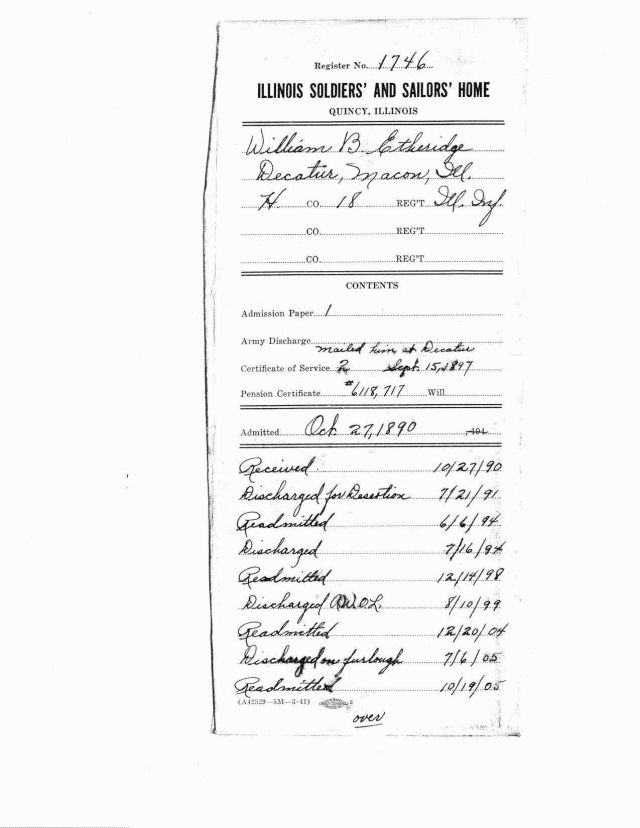 Register No. 1746
ILLINOIS SOLDIERS' AND SAILORS' HOME
QUINCY, ILLINOIS
William B Etheridge
Decatur, Macon, Ill.
H CO. 18 REG'T. Ill. Inf.
CO. REG'T.
CO. REG'T.
CONTENTS
Admission Paper 1
Army Discharge
mailed him at Decatur
Certificate of Service 2 Sept. 15, 1897
Pension Certificate #618,717 Will
Admitted Oct 27, 1890 194
Received 10/27/90
Discharged for Desertion 7/21/91
Readmitted 6/6/94
Discharged 7/16/94
Readmitted 12/14/98
Discharged A.W.O.L. 8/10/99
Readmitted 12/20/04
Discharged on furlough 7/6/05
Readmitted 10/19/05
(A42529—5M—3-41) 2
over